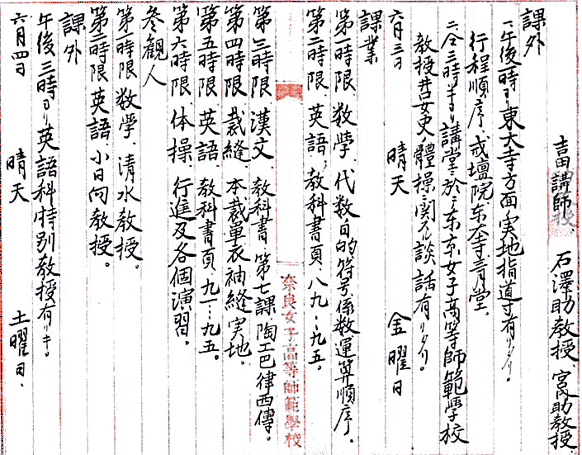 吉田講師 石澤助教授、宮助教授
課外
一、午後一時ヨリ東大寺方面実地指導有リタリ。
行程順序、戒壇院 東大寺 三月堂
二、仝三時半ヨリ講堂ニ於テ東京女子高等師範学校
教授 女史ノ體操ニ関スル談話有リタリ。
六月三日 晴天 金曜日
課業
第一時限 数學、代数目的符号係数運算順序。
第二時限 英語、教科書頁、八九-九五。
第三時限 漢文 教科書 第七課陶工巴律西傳。
第四時限 裁縫 本裁單衣袖縫実地。
第五時限 英語、教科書頁、九一-九五。
第六時限 体操、行進及各個演習。
参観人
第一時限 数學、清水教授。
第二時限 英語 小日向教授。
課外
午後三時ヨリ英語科特別教授有リキ。
六月四日 晴天 土曜日、
奈良女子高等師範學校